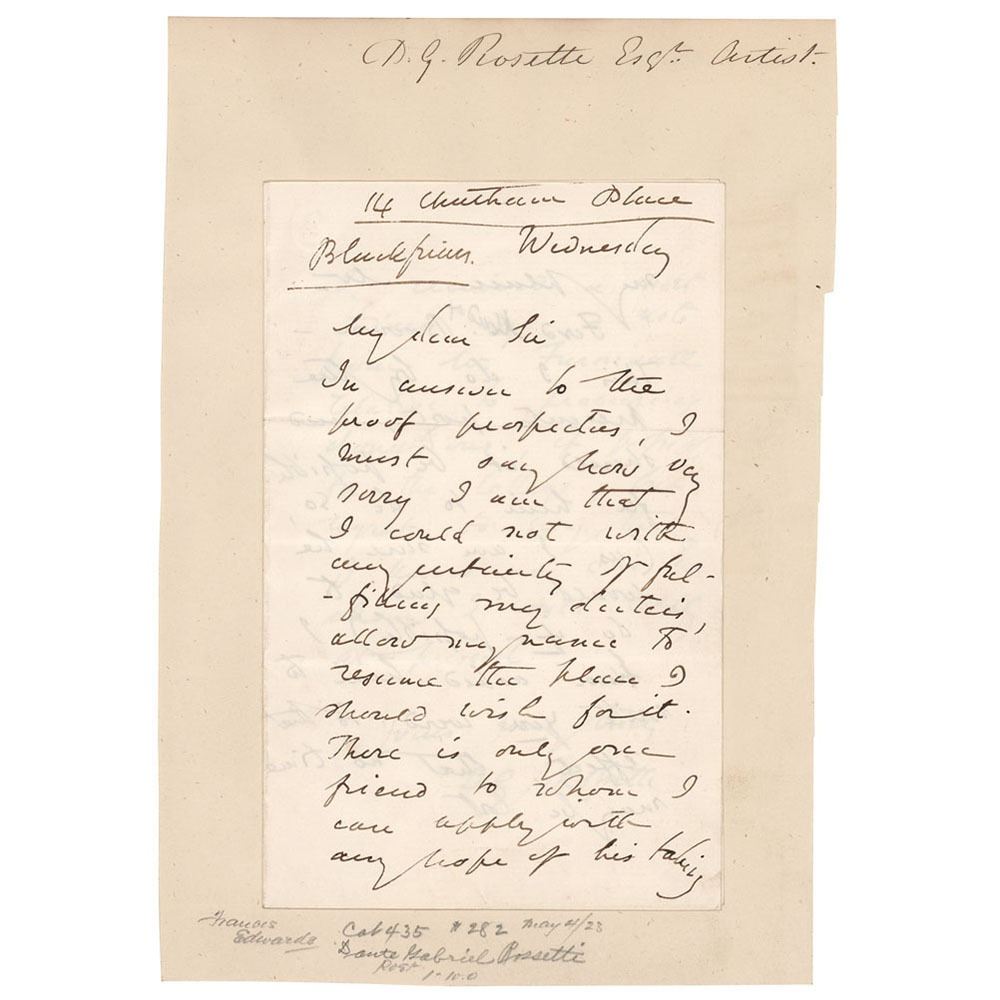 D. G. Rosette Esqr. Artist.
14 Chatham Place
Blackfriars. Wednesday
My dear Sir
In answer to the
proof prospectus, I
must say how very
sorry I am that
I could not with
any certainty of ful-
-filling my duties,
allow my name to
resume the place I
should wish for it.
There is only one
friend to whom I
can apply with
any hope of his taking
Francis
Edwards
Cat 435 #282 May 4/23
Dante Gabriel Rossetti
1-10.0